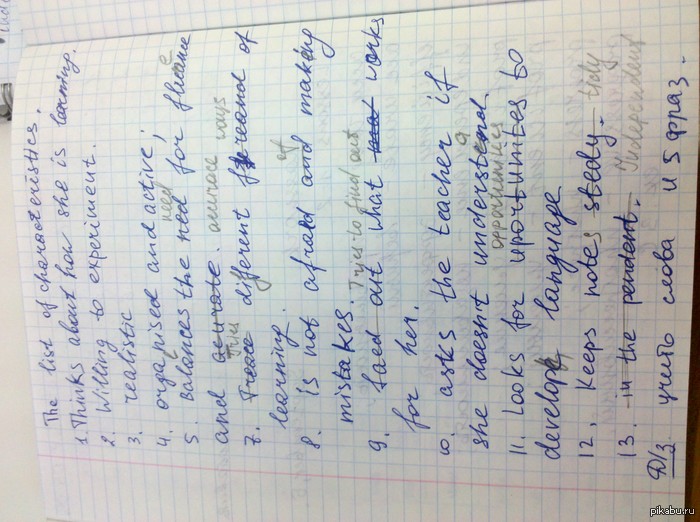 The list of characteristics.
1. Thinks about how she is learning.
2. Willing to experiment.
3. realistic
4. organised and active;
need
5. Balances the ned for fluence
and acurate. accurace
Tries ways
7. different of
learning.
of
8. is not afraid and making
mistakes. Tries to find out
9. faed out what works
for her.
10. asks the teacher if
she doesn't understand
opportunities
11. Looks for uportunites to
develop language
12. Keeps notes stedy. tidy
13. in the pendent. Independent
Д/з. учить слова и 5 фраз.
pikabu.ru